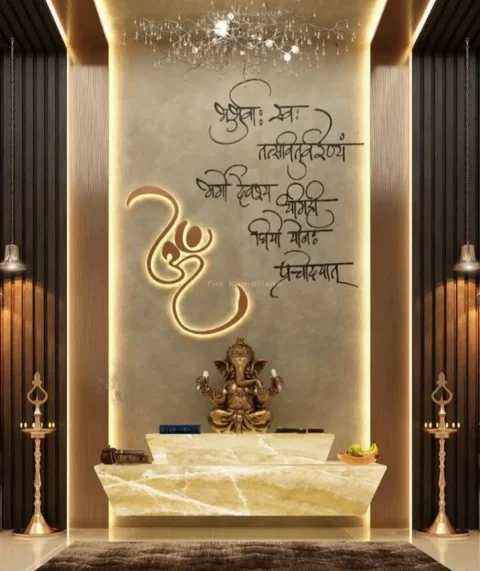 भूर्भुवः स्वः
तत्सवितुर्वरेण्यं
भर्गो देवस्य
धीमही
धियो योनः
प्रचोदयात्
ॐ